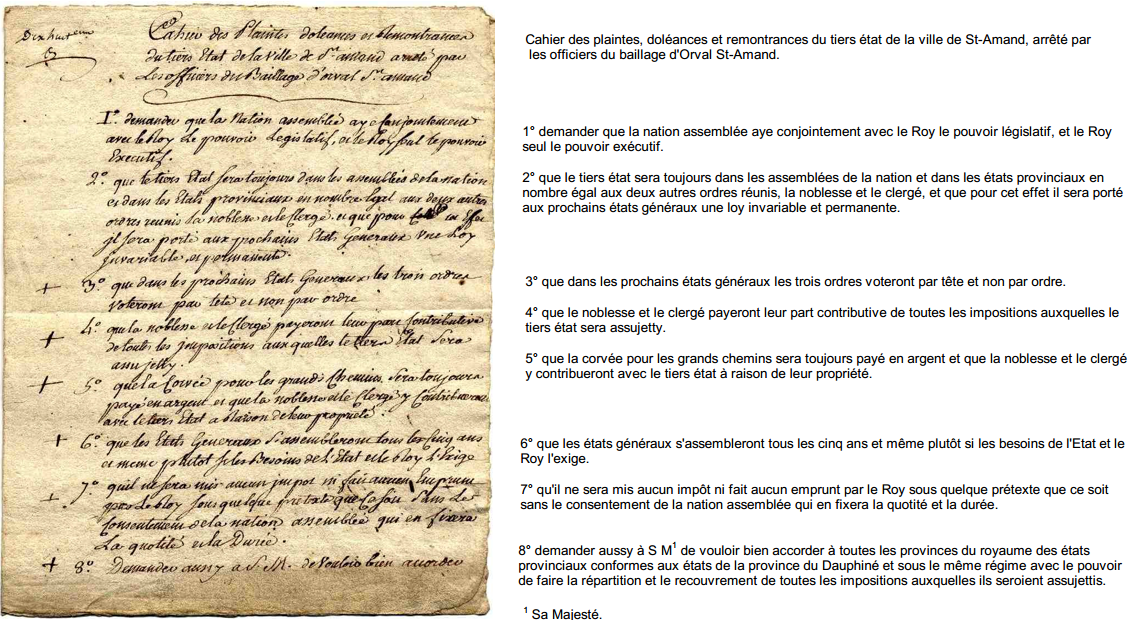 Dixhuit
Cahier des Plaintes doléances et Remontrances
du tiers Etat de la Ville de St amand areté par
Les officiers du Baillage d'orval St amand
1º. demander que la Nation assemblée aye Conjointement
avec le Roy Le pouvoir Legislatif, et le Roy seul le pouvoir
Executif.
2º. que le tiers Etat sera toujours dans les assemblées de la nation
et dans les Etats provinciaux en nombre Egal aux deux autres
ordres reunis la noblesse et le Clergé. et que pour cet effet
il sera porté aux prochains Etats Generaux une Loy
invariable, et permanente.
+ 3º. que dans les prochains Etats Generaux les trois ordres
voteront par tête et non par ordre
+ 4º. que la noblesse et le Clergé payeront leur part Contributive
de toutes les impositions aux quelles le tiers Etat sera
assujetty.
+ 5º. que la Corvée pour les grands Chemins, sera toujours
payé en argent et que la noblesse et le Clergé y Contribueront
avec le tiers Etat a Raison de leur propriété.
+ 6º. que les Etats Generaux s'assembleront tous les Cinq ans
et meme plutot si les Besoins de l'Etat et le Roy l'Exige
+ 7º. qu'il ne sera mis aucun impot ni fait aucun Emprunt
par Le Roy sous quelque pretexte que Ce soit sans Le
Consentement de la nation assemblée qui en fixera
La quotité et la Durée.
+ 8º. Demander aussy a S. M. de Vouloir bien accorder
Cahier des plaintes, doléances et remontrances du tiers état de la ville de St-Amand, arrêté par
les officiers du baillage d'Orval St-Amand.
1° demander que la nation assemblée aye conjointement avec le Roy le pouvoir législatif, et le Roy
seul le pouvoir exécutif.
2° que le tiers état sera toujours dans les assemblées de la nation et dans les états provinciaux en
nombre égal aux deux autres ordres réunis, la noblesse et le clergé, et que pour cet effet il sera porté
aux prochains états généraux une loy invariable et permanente.
3° que dans les prochains états généraux les trois ordres voteront par tête et non par ordre.
4° que le noblesse et le clergé payeront leur part contributive de toutes les impositions auxquelles le
tiers état sera assujetty.
5° que la corvée pour les grands chemins sera toujours payé en argent et que la noblesse et le clergé
y contribueront avec le tiers état à raison de leur propriété.
6° que les états généraux s'assembleront tous les cinq ans et même plutôt si les besoins de l'Etat et le
Roy l'exige.
7° qu'il ne sera mis aucun impôt ni fait aucun emprunt par le Roy sous quelque prétexte que ce soit
sans le consentement de la nation assemblée qui en fixera la quotité et la durée.
8° demander aussy à S M¹ de vouloir bien accorder à toutes les provinces du royaume des états
provinciaux conformes aux états de la province du Dauphiné et sous le même régime avec le pouvoir
de faire la répartition et le recouvrement de toutes les impositions auxquelles ils seroient assujettis.
¹ Sa Majesté.